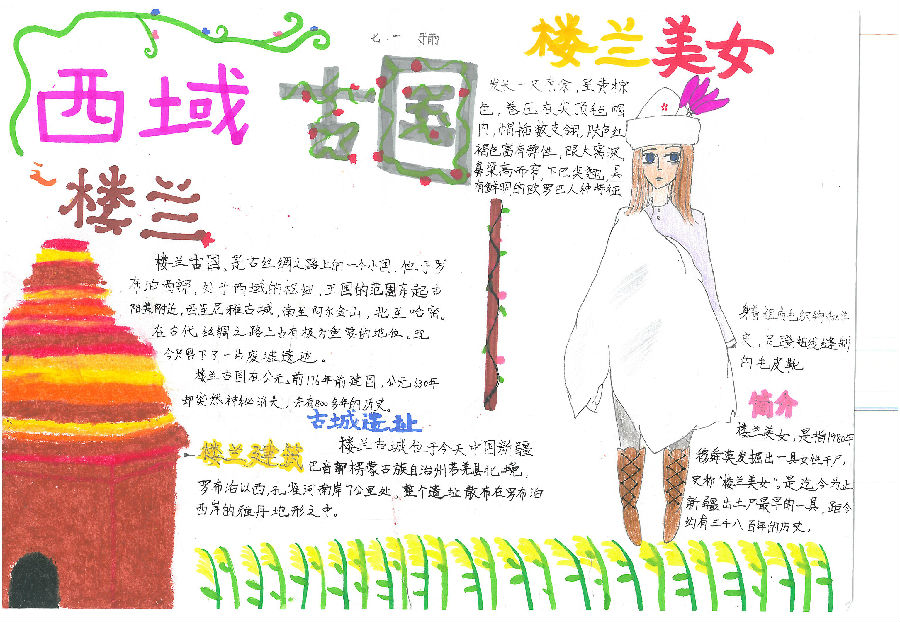 西域古国
之
楼兰
楼兰美女
发长一尺有余，呈黄棕
色，卷压在尖顶毡帽
内，帽插数支翎，肤色红
褐色富有弹性，眼大窝深，
鼻梁高而窄，下巴尖翘，具
有鲜明的欧罗巴人种特征
楼兰古国，是古丝绸之路上的一个小国，位于罗
布泊西部，处于西域的枢纽，王国的范围东起古
阳关附近，西至尼雅古城，南至阿尔金山，北至哈密。
在古代丝绸之路上占有极为重要的地位。现
今只留下了一片废墟遗迹。
楼兰古国在公元前176年前建国，公元630年
却突然神秘消失，共有800多年的历史。
古城遗址
楼兰建筑
楼兰古城位于今天中国新疆
巴音郭楞蒙古族自治州若羌县北境，
罗布泊以西，孔雀河南岸7公里处，整个遗址散布在罗布泊
西岸的雅丹地形之中。
身着粗
衣，足
的毛皮靴
简介
楼兰美女，是指1980年
发掘出一具女性干尸，
又称“楼兰美女”。是迄今为止
新疆出土尸最早的一具，距今
约有三千八百年的历史。